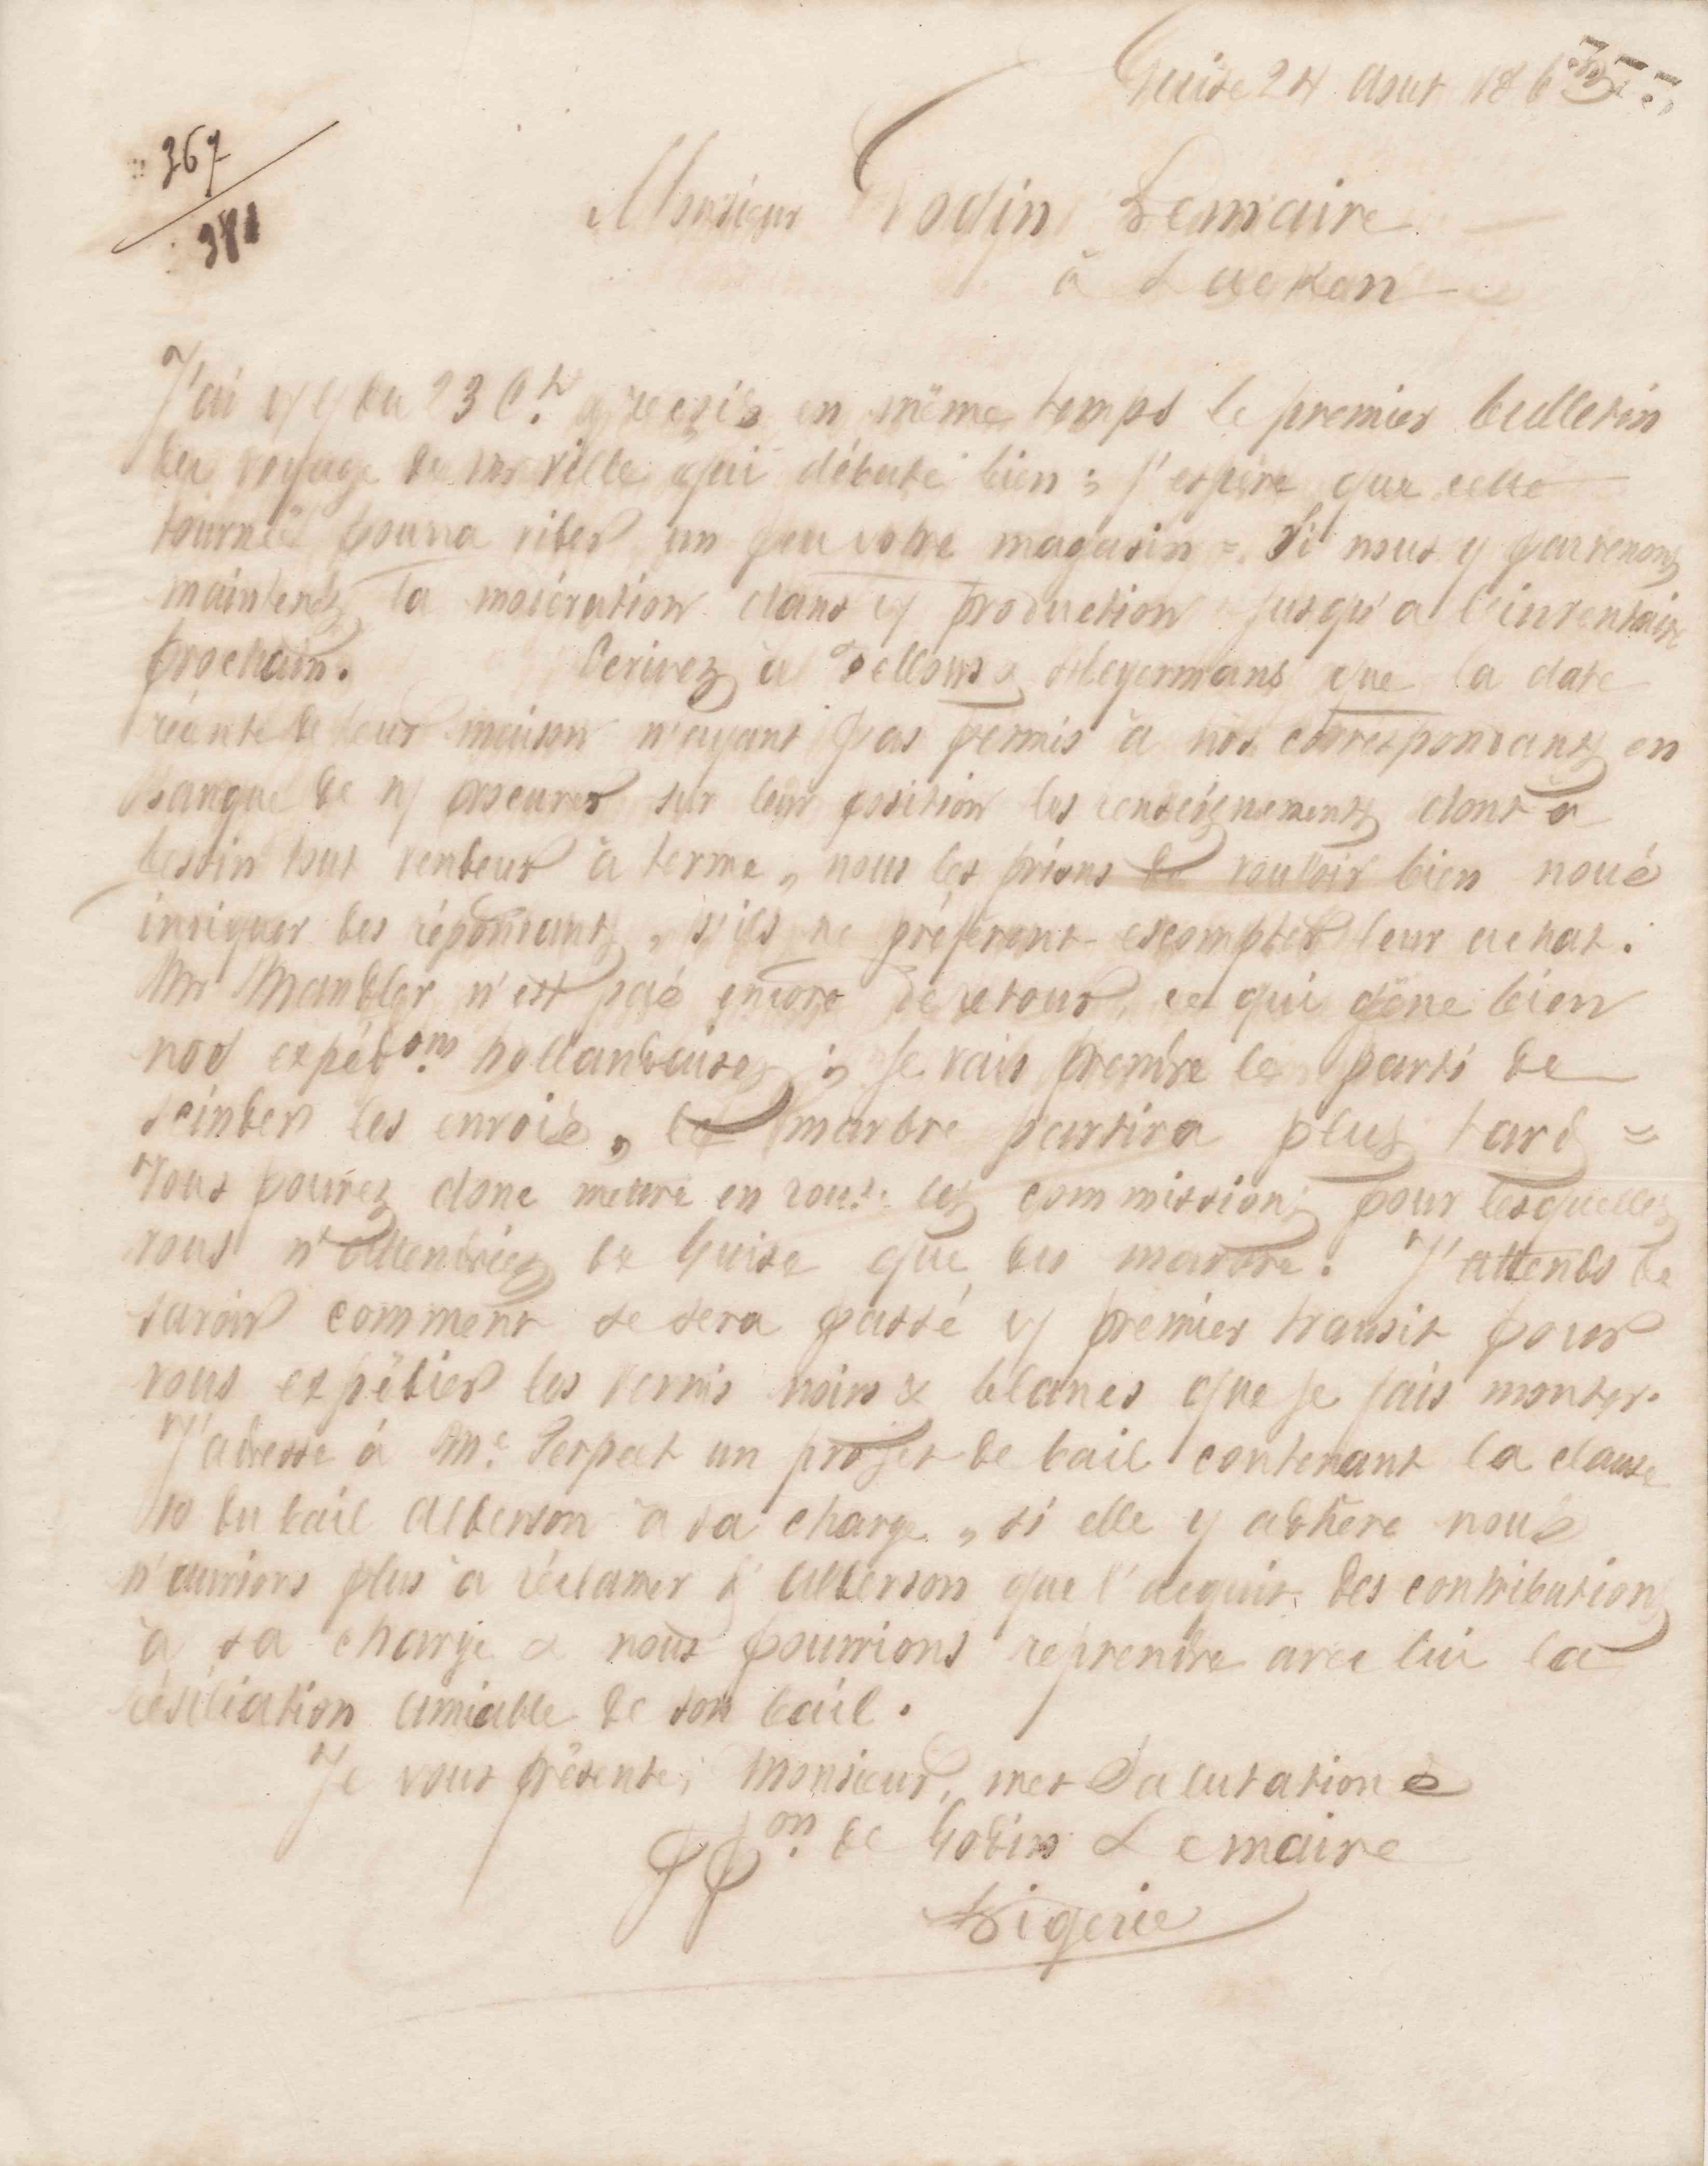 Guise 24 Aout 1863
367
381
Monsieur Godin Lemaire
à Laeken
J'ai v/ du 23 Ct. & reçois en même temps le premier bulletin
du voyage de Mr qui débute bien ; j'espère que cette
tournée pourra vider un peu votre magasin = Si nous y parvenons
maintenez la modération dans v/ production jusqu'à l'inventaire
prochain. Ecrivez à Heyermans que la date
récente de leur maison n'ayant pas permis à nos correspondants en
banque de n/ procurer sur leur position les renseignements dont a
besoin tout vendeur à terme, nous les prions de vouloir bien nous
indiquer des répondants, s'ils ne préfèrent escompter leur achat.
Mr n'est pas encore de retour, ce qui gêne bien
nos expédons hollandaises ; je vais prendre le parti de
scinder les envois, le marbre partira plus tard =
Vous pouvez donc mettre en route les commissions pour lesquelles
vous n'attendriez de Guise que du marbre. J'attends de
savoir comment se sera passé v/ premier transit pour
vous expédier les vernis noirs & blancs que je fais monter.
J'adresse à Me. un projet de bail contenant la clause
10 du bail Alberson à sa charge, si elle y adhère nous
n'aurions plus à réclamer d'Alberson que l'acquit des contributions
à sa charge & nous pourrions reprendre avec lui la
résiliation amiable de son bail.
Je vous présente, Monsieur, mes Salutations
PPon de Godin Lemaire